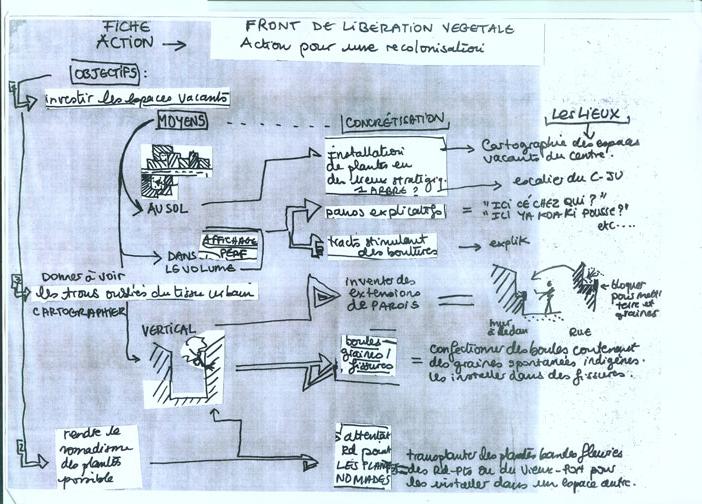 FICHE
ACTION
FRONT DE LIBÉRATION VEGETALE
Action pour une recolonisation
OBJECTIFS :
investir les espaces vacants
MOYENS
CONCRÉTISATION
LES LIEUX
installation
de plantes en
des lieux stratégiq.
1 ARBRE ?
Cartographie des espaces
vacants du centre.
escalier du C-JU
AU SOL
panos explicatifs
= "ICI CÉ CHEZ QUI ?"
"ICI YA KOA KI POUSSE ?"
etc....
AFFICHAGE
PERF
DANS
LE VOLUME
tracts stimulent
des boutures
explik
Donner à voir
les trous oubliés du tissu urbain
CARTOGRAPHIER
inventer des
extensions
de PAROIS
bloquer
pour mettre
terre et
graines
mur
RUE
VERTICAL
boules
graines /
fissures
= confectionner des boules contenant
des graines spontanées indigènes.
les installer dans des fissures.
rendre le
nomadisme
des plantes
possible
attentat
Rd point
LES PLANTES
NOMADES
transplanter des plantes bandes fleuries
des Rd-Pts ou du Vieux-Port pour
les installer dans un espace autre.